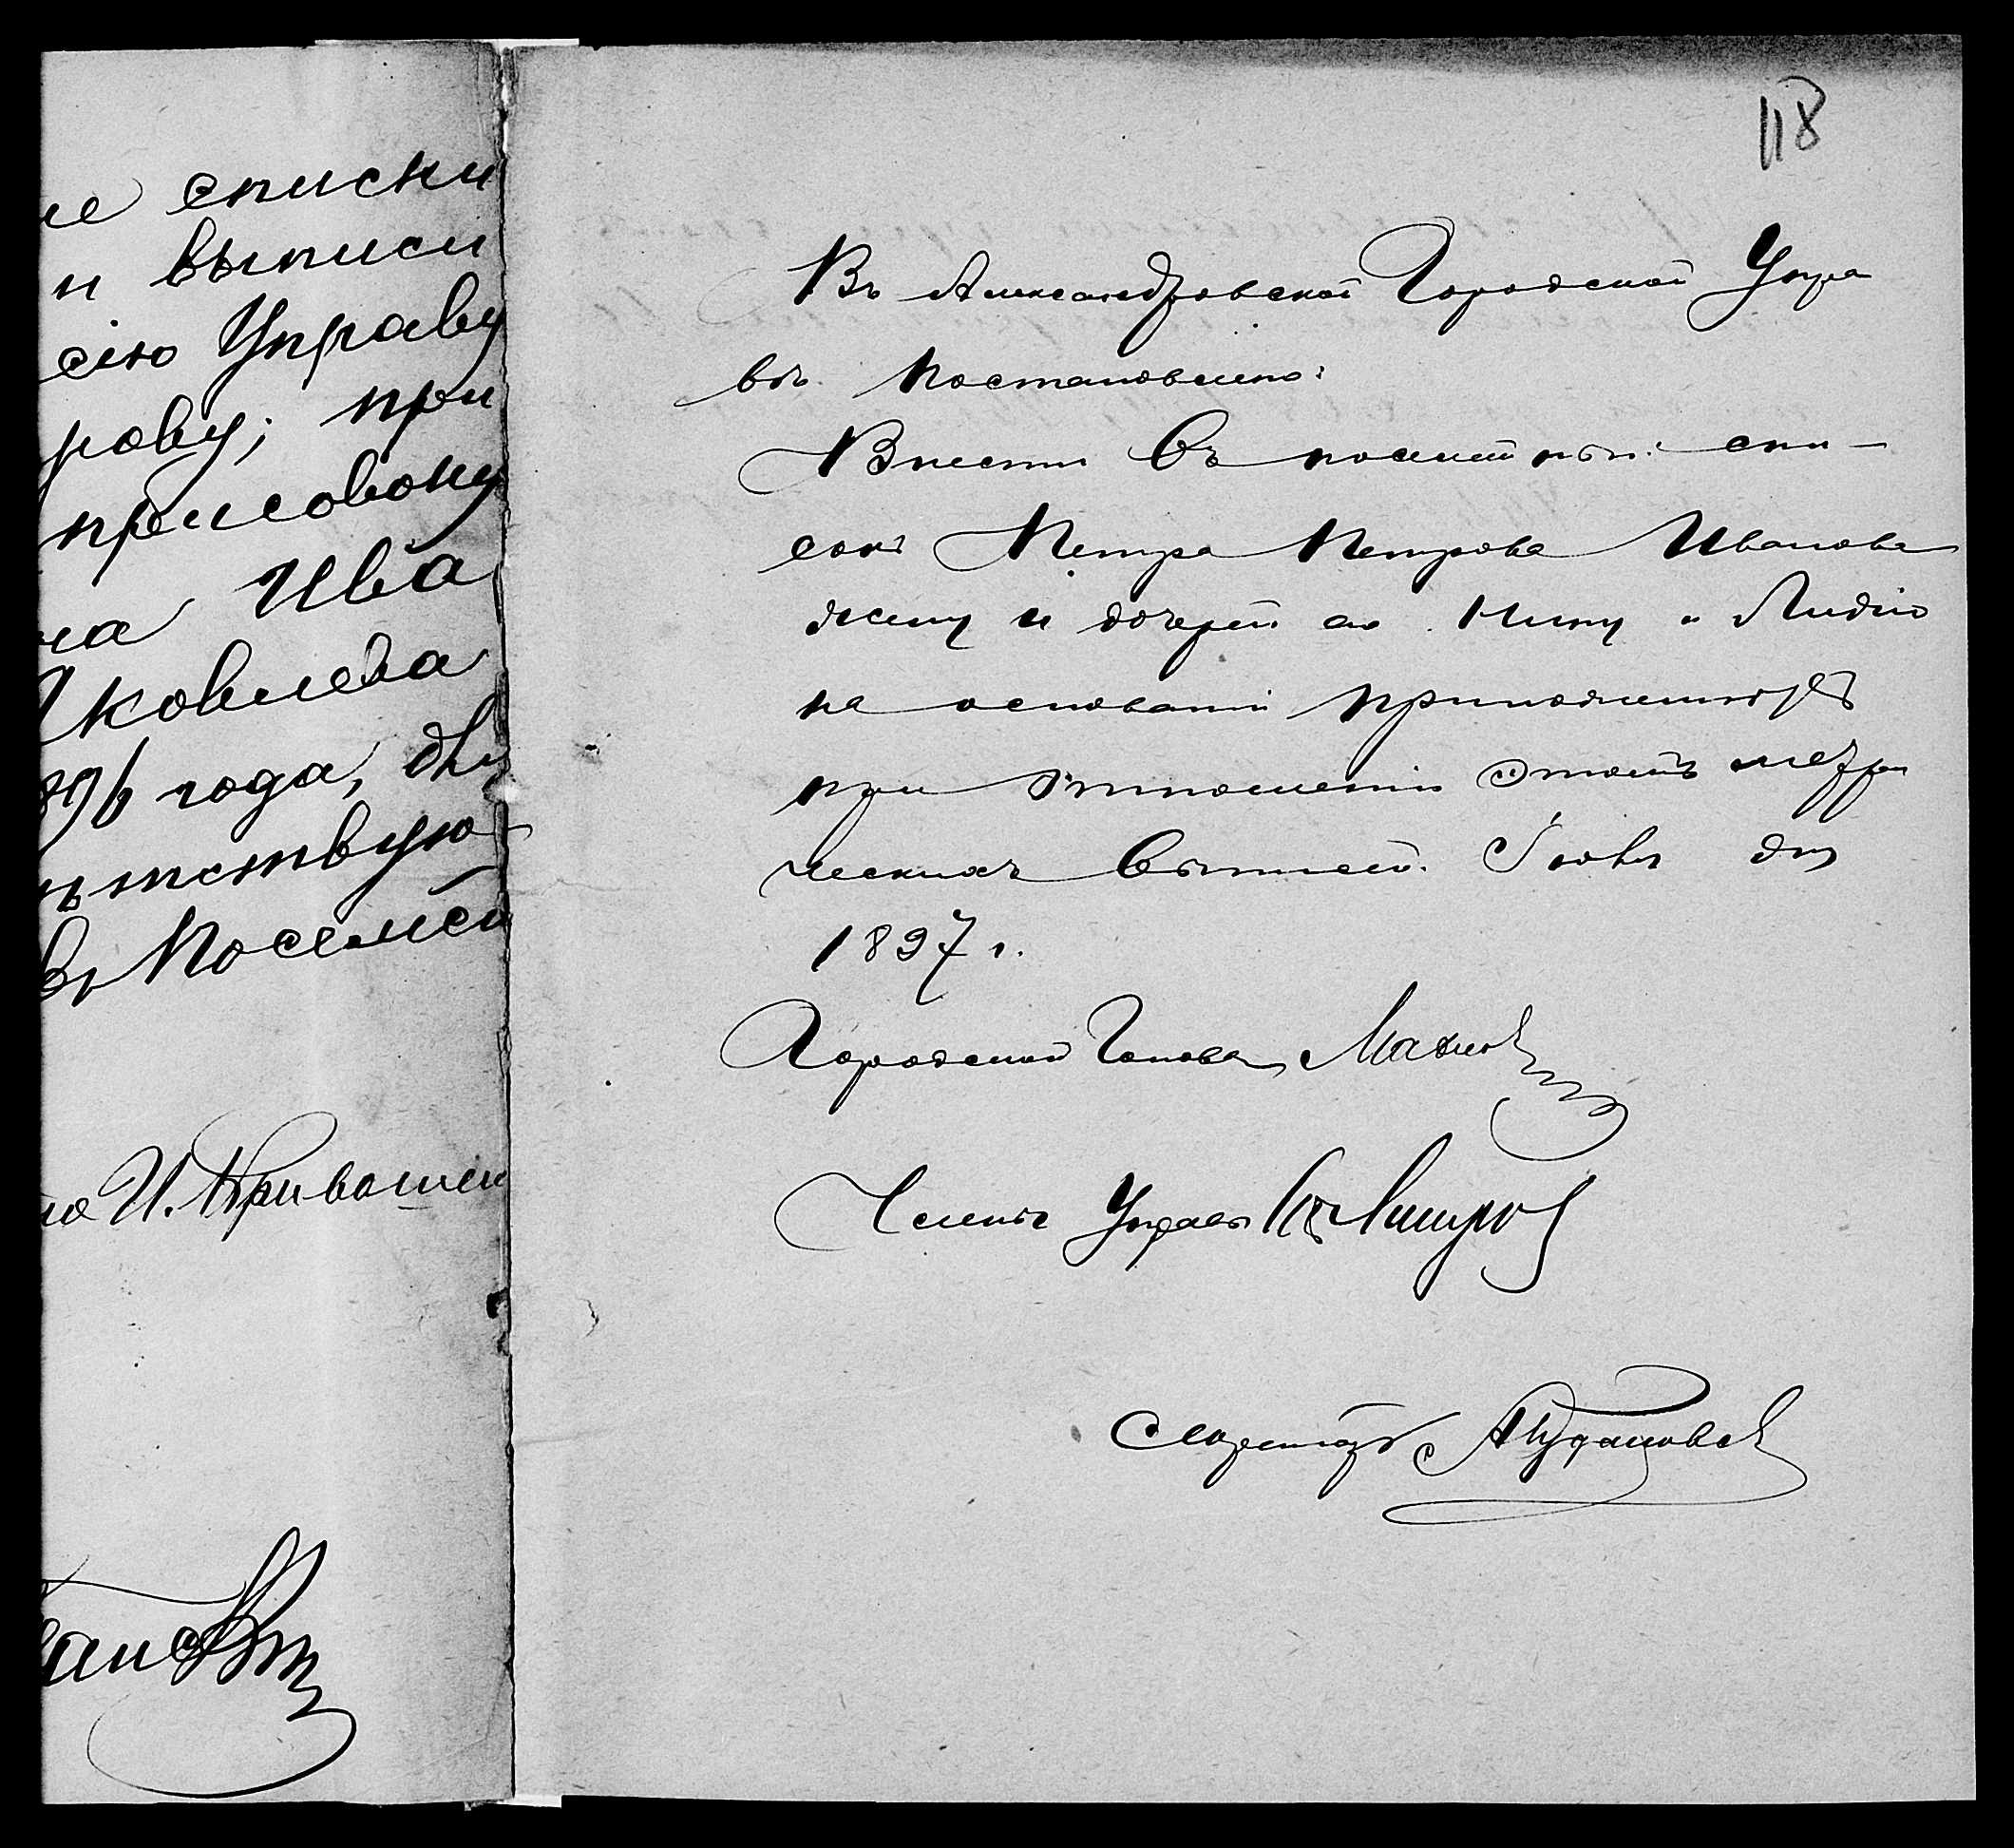 е списки
и выписи
сію Управу
рову; при
присовоку
на Ива
Яковлева
896 года, дку
тствую
въ Посемей
И. Кривошеи
118
Въ Александровской Городской Упра
вѣ Постановлено:
Внести въ посемейный спи-
сокъ Петра Петрова Иванова
жену и дочерей его Нину и Лидію
на основаніи приложенныхъ
при отношеніи этомъ метри
ческихъ выписей. Іюня дня
1897 г.
Городской Голова
Членъ Управы
Секретарь